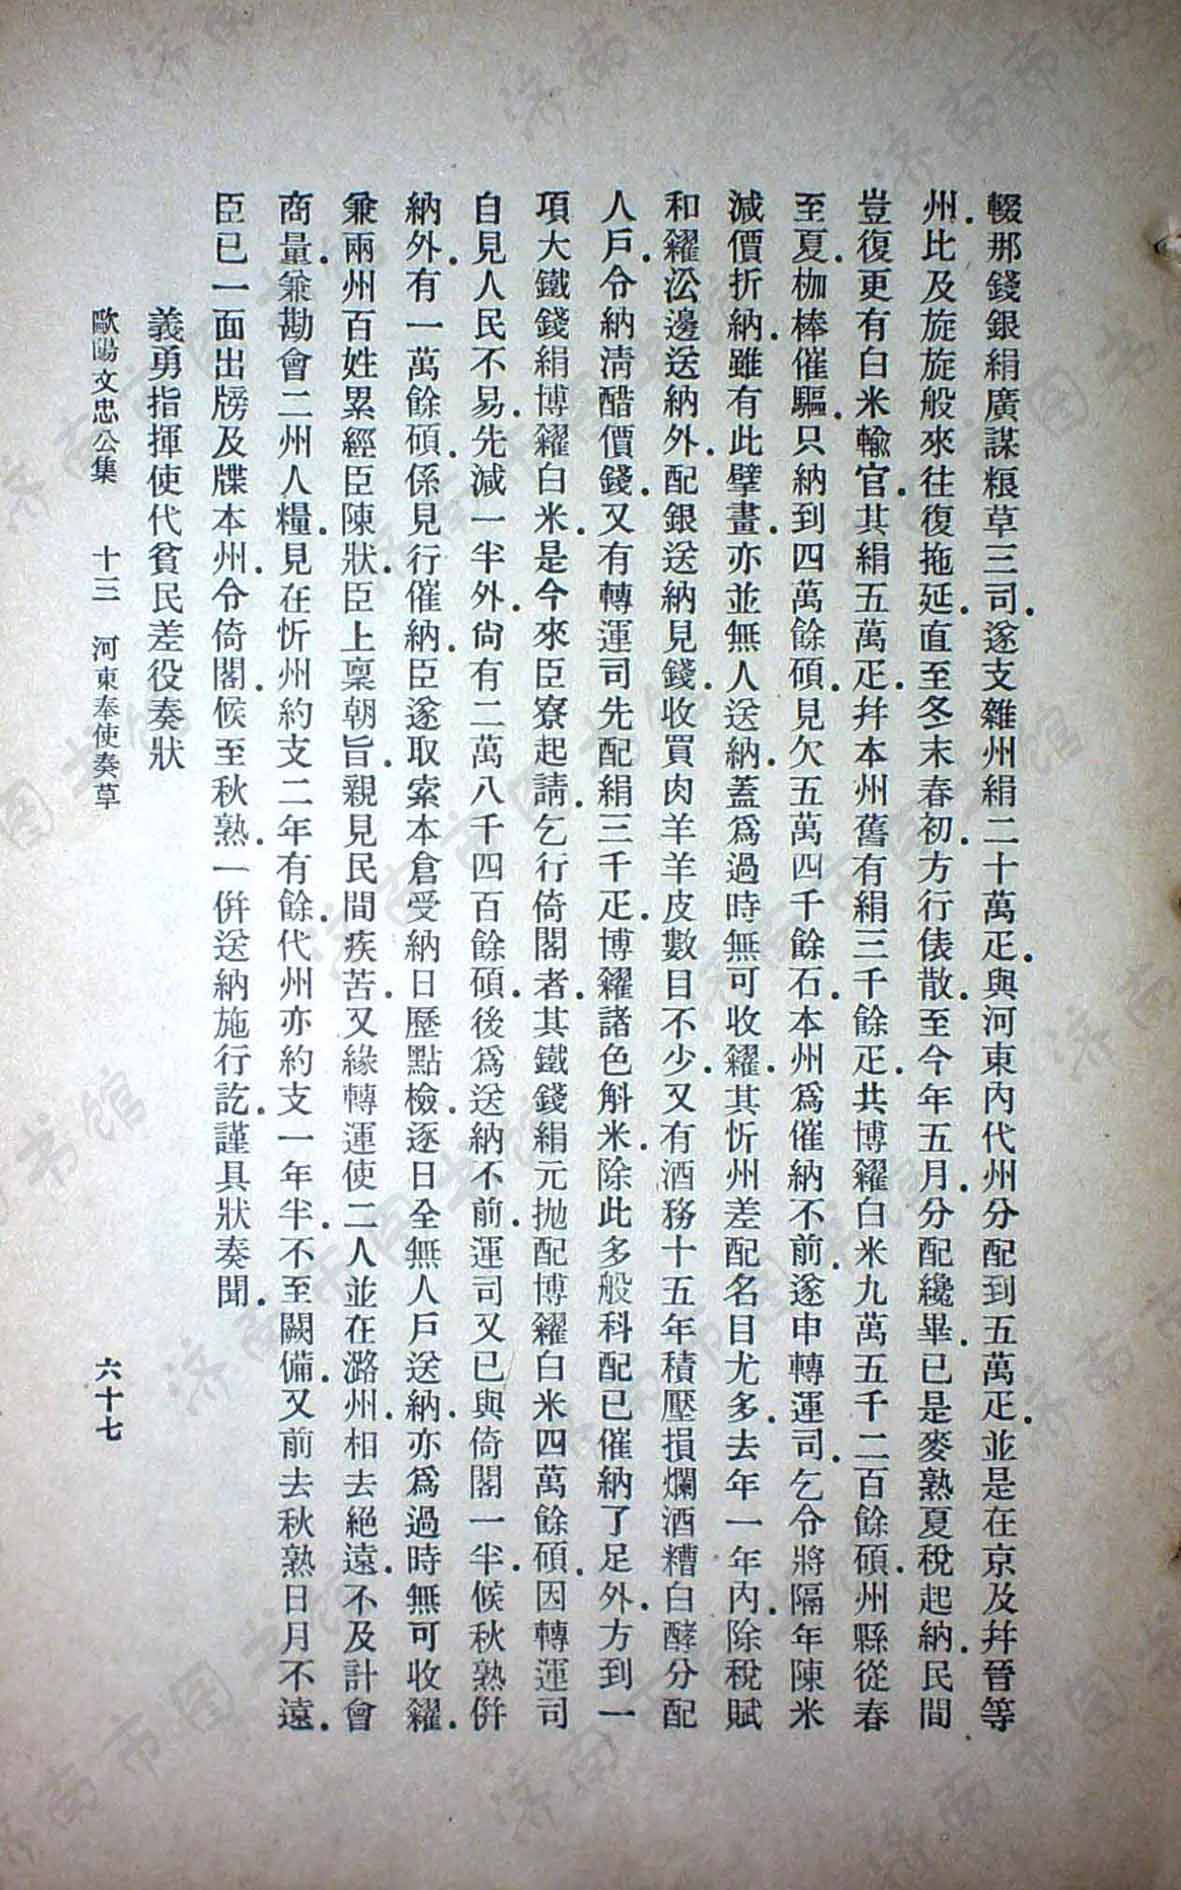 輟那錢銀絹廣謀粮草三司．遂支雜州絹二十萬疋．與河東內代州分配到五萬疋．並是在京及幷晉等
州．比及旋旋般來往復拖延．直至冬末春初．方行俵散．至今年五月．分配纔畢．已是麥熟夏稅起納．民間
豈復更有白米輸官．其絹五萬疋．幷本州舊有絹三千餘疋．共博糴白米九萬五千二百餘碩．州縣從春
至夏．枷棒催驅．只納到四萬餘碩．見欠五萬四千餘石．本州爲催納不前．遂申轉運司．乞令將隔年陳米
減價折納．雖有此擘畫．亦並無人送納．蓋爲過時無可收糴．其忻州差配名目尤多．去年一年內．除稅賦
和糴㳂邊送納外．配銀送納見錢．收買肉羊羊皮數目不少．又有酒務十五年積壓損爛酒糟白酵分配
人戶．令納淸醋價錢．又有轉運司先配絹三千疋．博糴諸色斛米．除此多般科配已催納了足外．方到一
項大鐵錢絹博糴白米．是今來臣寮起請．乞行倚閣者．其鐵錢絹元抛配博糴白米四萬餘碩．因轉運司
自見人民不易．先減一半外．尙有二萬八千四百餘碩．後爲送納不前．運司又已與倚閣一半．候秋熟倂
納外．有一萬餘碩．係見行催納．臣遂取索本倉受納日歷點檢．逐日全無人戶送納．亦爲過時無可收糴．
兼兩州百姓累經臣陳狀．臣上稟朝旨．親見民間疾苦．又緣轉運使二人並在潞州．相去絕遠．不及計會
商量．兼勘會二州人糧．見在忻州約支二年有餘．代州亦約支一年半．不至闕備．又前去秋熟日月不遠．
臣已一面出牓及牒本州．令倚閣．候至秋熟．一倂送納施行訖．謹具狀奏聞．
義勇指揮使代貧民差役奏狀
歐陽文忠公集　十三　河東奉使奏草　六十七